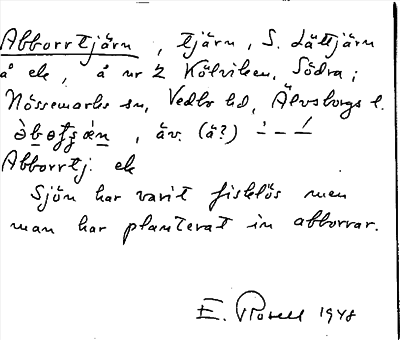 Abborrtjärn, tjärn, S. Lättjärn
å ek, å nr 2 Kölviken, Södra;
Nössemarks sn, Vedbo hd, Älvsborgs l.
, äv. (ä?)
Abborrtj. ek
Sjön har varit fisklös men
man har planterat in abborrar.
E. Rosell 1948